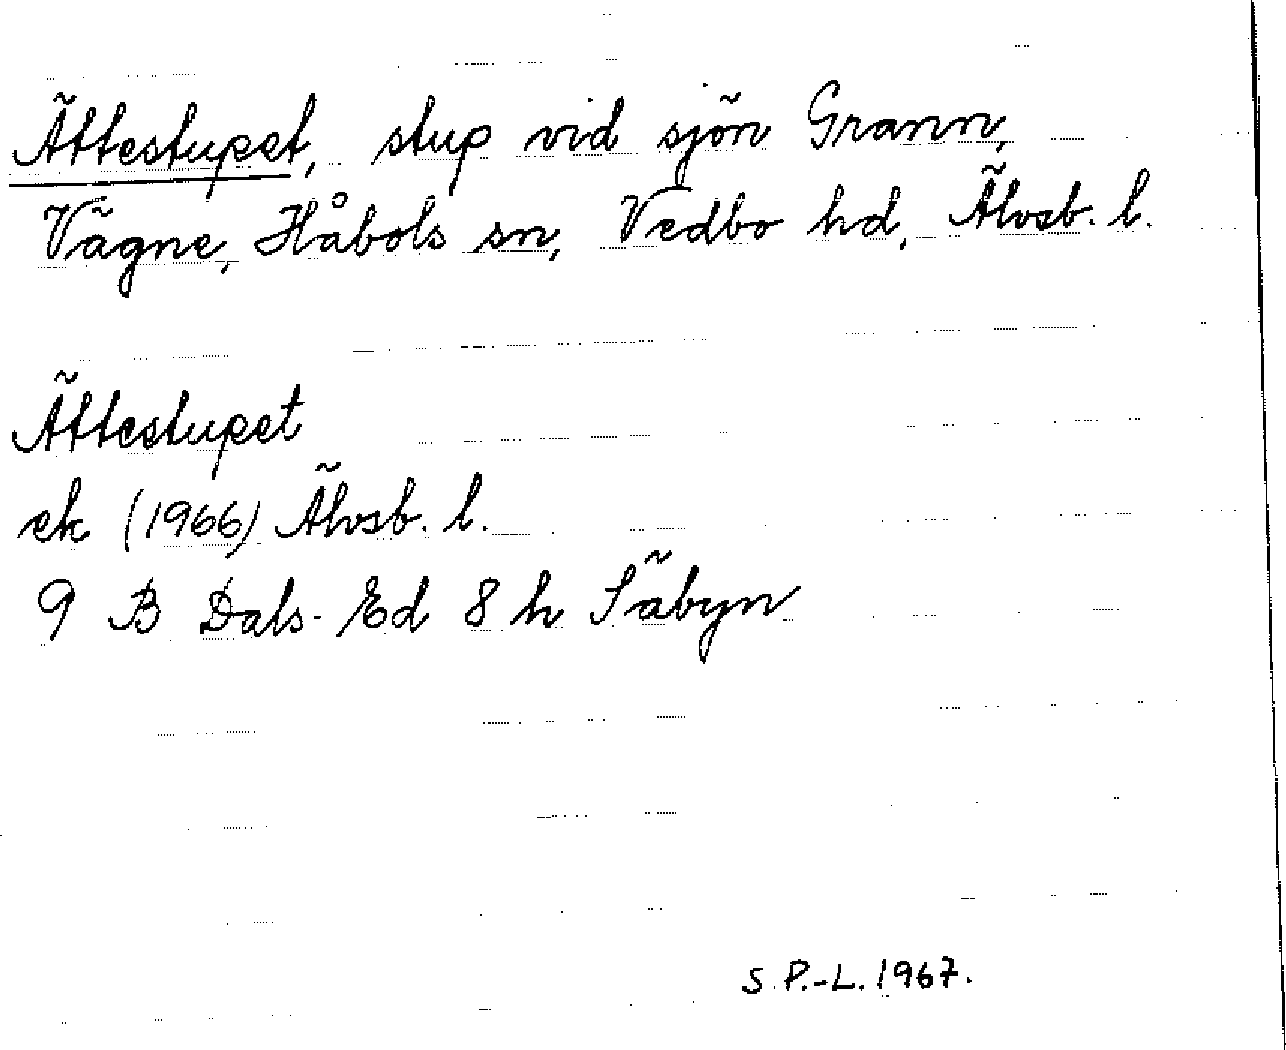 Ättestupet, stup vid sjön Grann,
Vägne, Håbols sn, Vedbo hd, Älvsb. l.
Ättestupet
ek (1966) Älvsb. l.
9 B Dals-Ed 8 h Säbyn
S. P.-L. 1967.